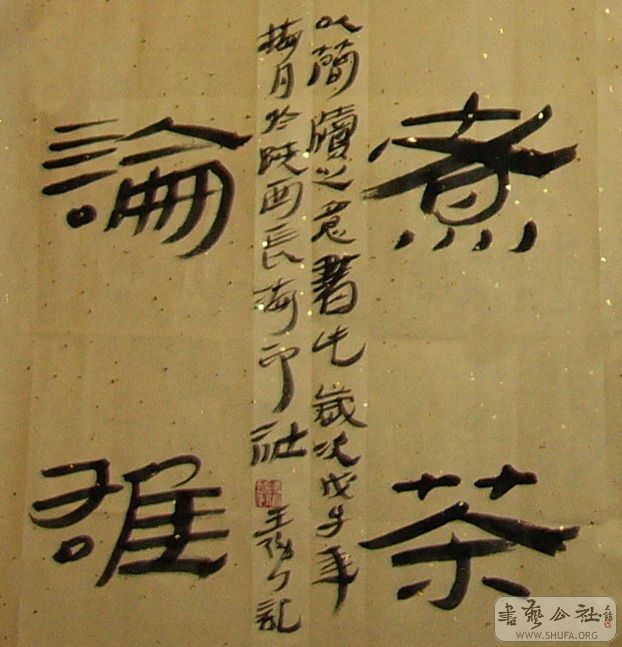 煮茶
以簡牘之意書 歲次戊子年
梅月於陝西長 印社 王 記
論雅
書藝公社
WWW.SHUFA.ORG